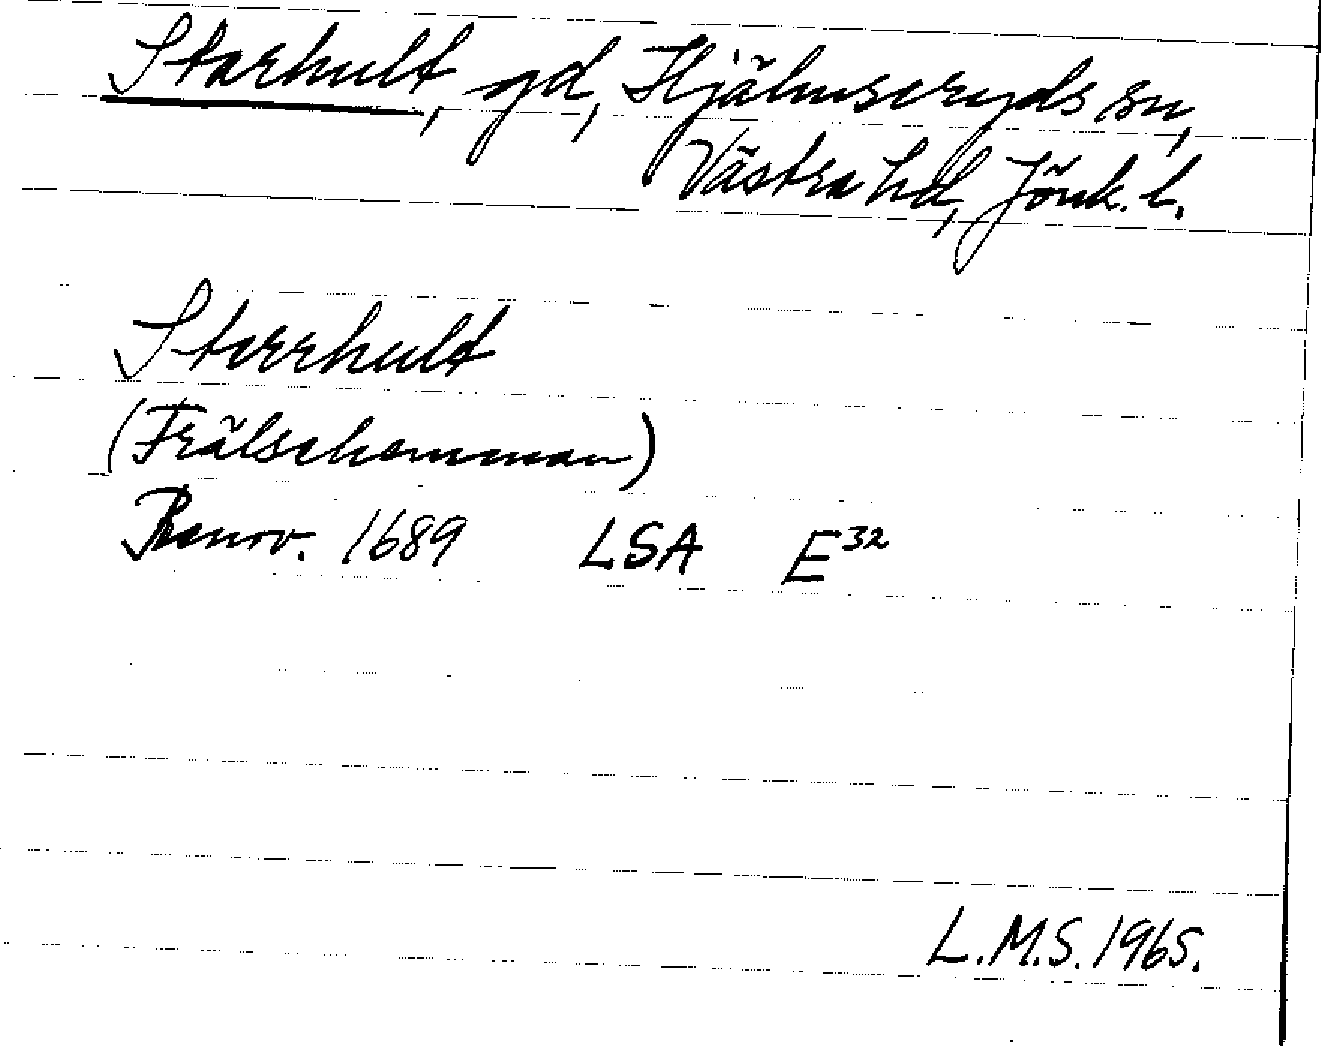 Starhult, gd, Hjälmseryds sn,
Västra hd, Jönk. l.
Starrhult
(Frälsehemman)
Renov. 1689 LSA E³²
L.M.S. 1965.